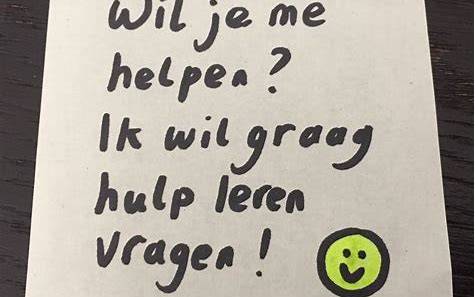 Wil je me
helpen?
Ik wil graag
hulp leren
vragen!